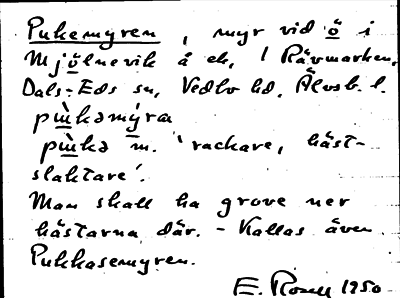 Pukemyren, myr vid ö i
Mjölnevik å ek, i Rävmarken,
Dals-Eds sn, Vedbo hd, Älvsb. l.
pɯ̀kəmýra
pɯ̀kə m. 'rackare, häst-
slaktare'.
Man skall ha grove ner
hästarna där. - Kallas även
Pukkasemyren.
E. 1950